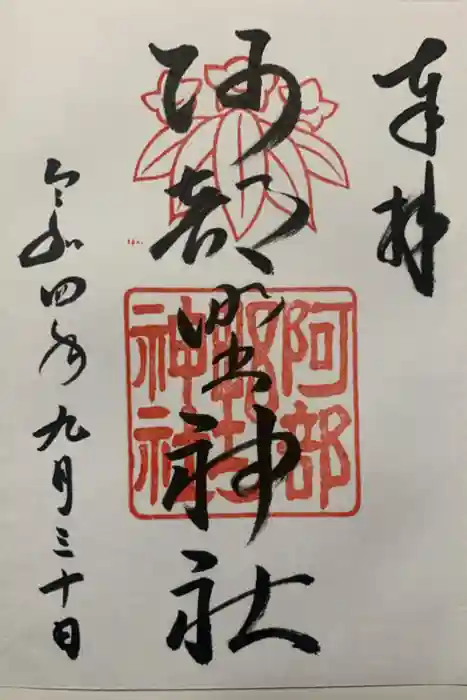 奉拝
阿部野神社
阿部野神社
令和四年九月三十日